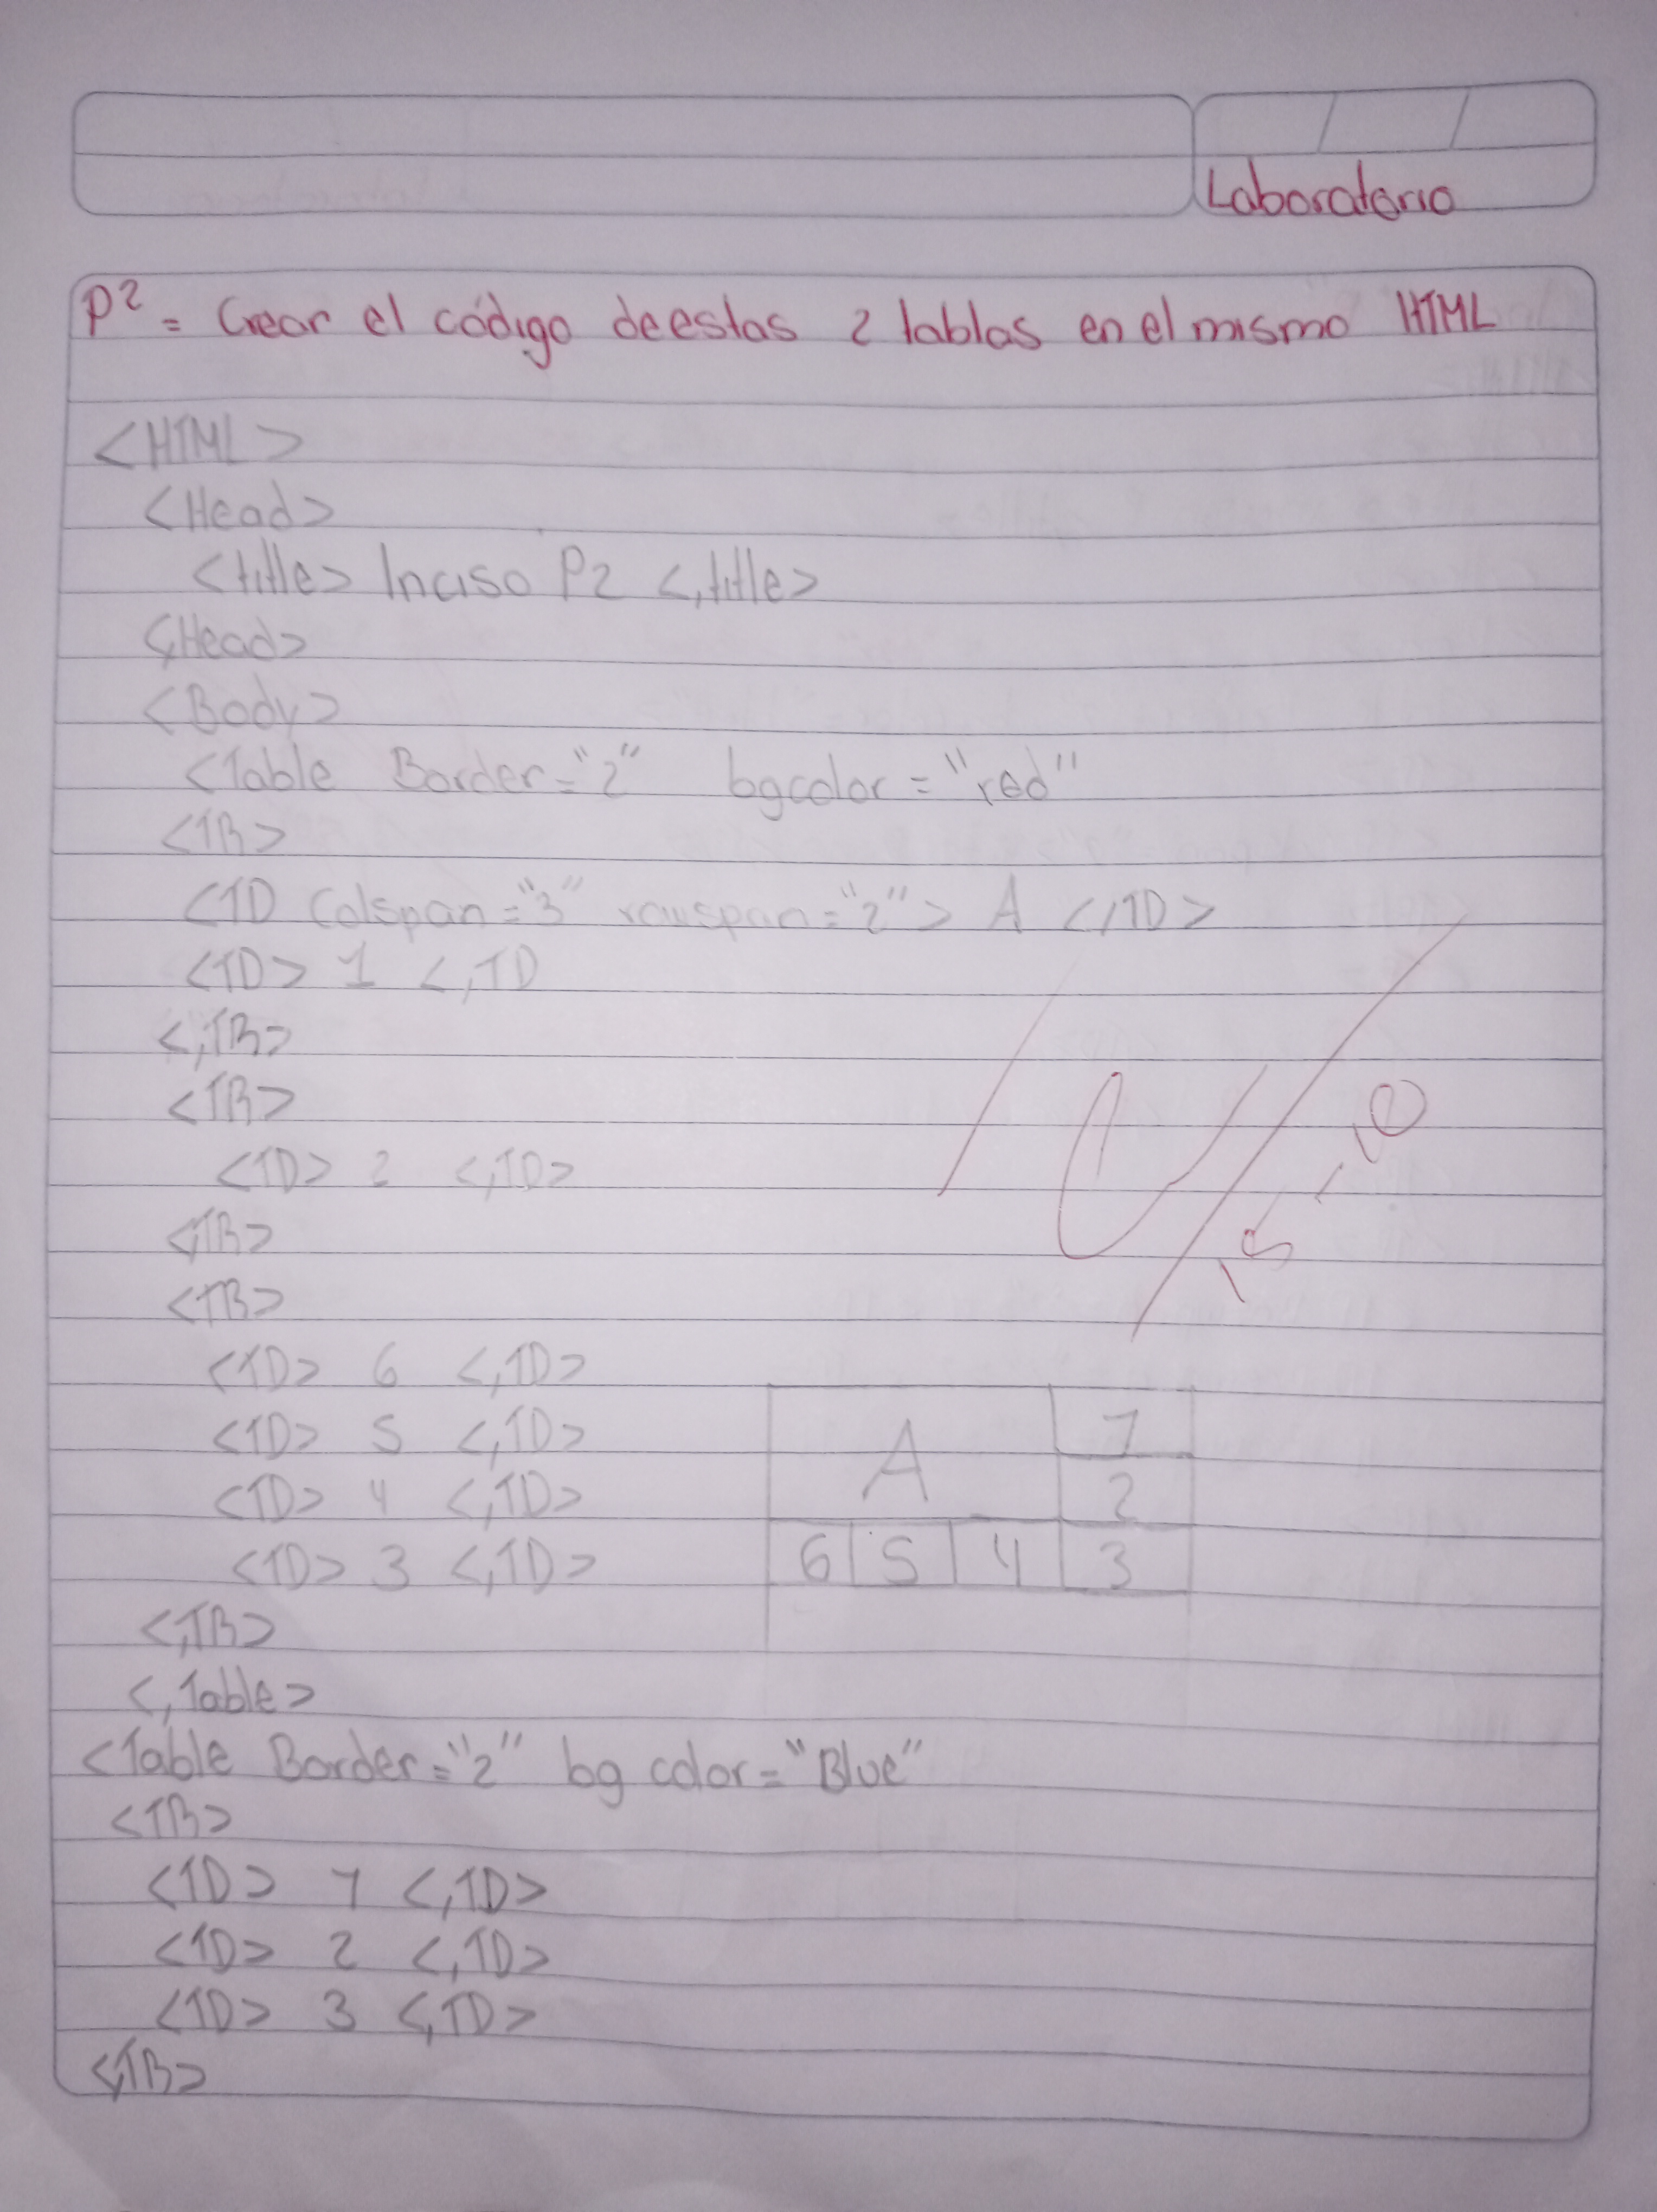 Laboratorio
P2 = Crear el código de estas 2 tablas en el mismo HTML
<HTML>
<Head>
<title> Inciso P2 <,title>
<,Head>
<Body>
<Table Border="2" bgcolor="red"
<TB>
<TD Colspan="3" rowspan="2"> A <,TD>
<TD> 1 <,TD
<,TB>
<TB>
<TD> 2 <,TD>
<,TB>
<TB>
<TD> 6 <,TD>
<TD> 5 <,TD>
<TD> 4 <,TD>
<TD> 3 <,TD>
A 1
2
6 5 4 3
<,TB>
<,Table>
<Table Border="2" bg color="Blue"
<TB>
<TD> 1 <,TD>
<TD> 2 <,TD>
<TD> 3 <,TD>
<,TB>